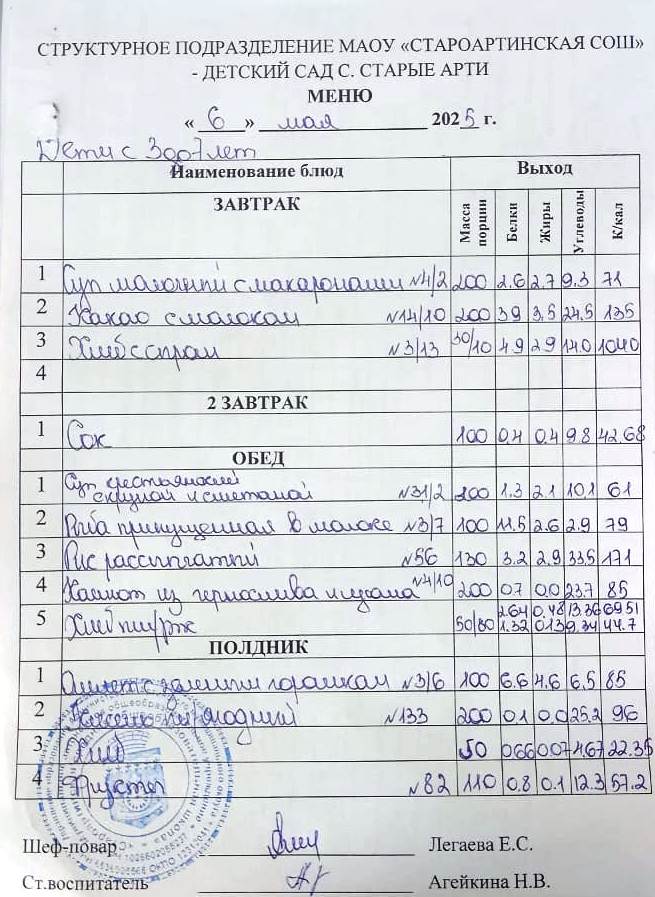 СТРУКТУРНОЕ ПОДРАЗДЕЛЕНИЕ МАОУ «СТАРОАРТИНСКАЯ СОШ»
- ДЕТСКИЙ САД С. СТАРЫЕ АРТИ
МЕНЮ
« 6 » мая 2025 г.
Дети с 3 до 7 лет
Наименование блюд Выход
ЗАВТРАК Масса порции Белки Жиры Углеводы К/кал
1 Суп молочный с макаронами №4/2 200 2.6 2.7 9.3 71
2 Какао с молоком №14/10 200 3.9 3.5 24.5 135
3 Хлеб с сыром №3/13 30/10 4.9 2.9 14.0 104.0
4
2 ЗАВТРАК
1 Сок 100 0.4 0.4 9.8 42.68
ОБЕД
1 Суп крестьянский
с крупой и сметаной №31/2 200 1.3 2.1 10.1 61
2 Рыба припущенная в молоке №3/7 100 11.5 2.6 2.9 79
3 Рис рассыпчатый №56 130 3.2 2.9 33.5 171
4 Компот из чернослива и изюма №4/10 200 0.7 0.0 23.7 85
5 Хлеб пш/рж 50/80 2.64 0.48 13.36 69.51
1.32 0.13 9.34 44.7
ПОЛДНИК
1 Омлет с зеленым горошком №3/6 100 6.6 4.6 6.5 85
2 Кисель плодовый №133 200 0.1 0.0 25.2 96
3 Хлеб 50 0.66 0.07 4.67 22.35
4 Фрукты №82 110 0.8 0.1 12.3 57.2
Шеф-повар Легаева Е.С.
Ст.воспитатель Агейкина Н.В.